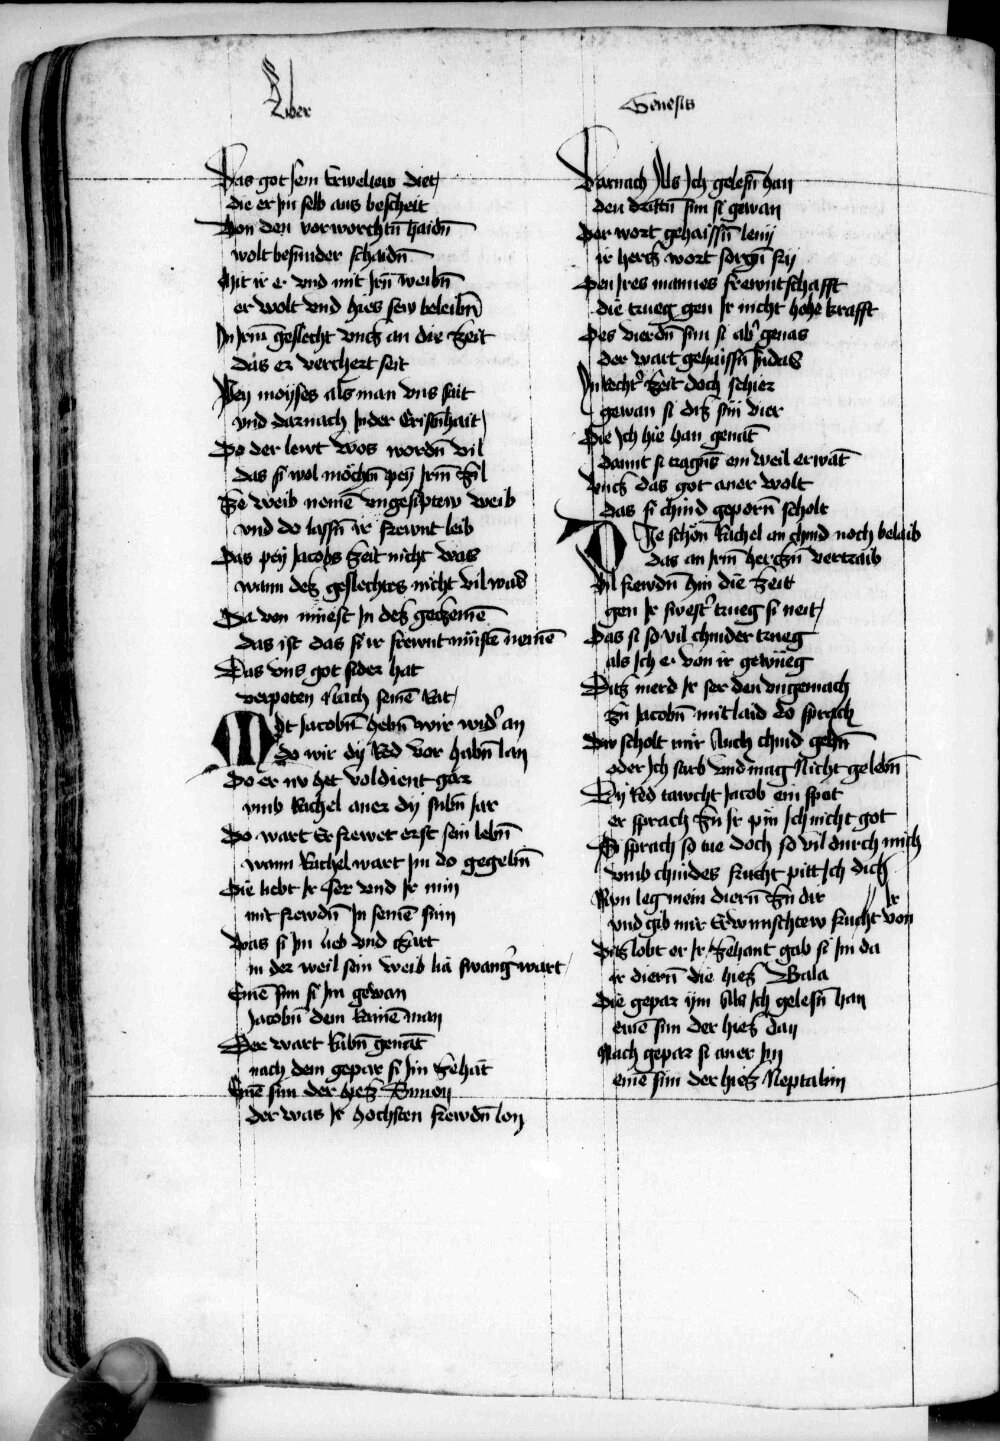 Liber
Genesis
Das got sein Erweltew diet
die er im selb aus bescheit
Von den vorworchtn̄ haidn̄
wolt besunder schaidn̄
Mit ir e vnd mit Irn̄ weibn̄
er wolt vnd hies sew beleibn̄
In Irm̄ geslecht vncz an die Zeit
das er verchert seit
Pey moyses als man vns sait
vnd darnach Inder Cristnhait
Do der lewt wos wordn̄ vil
das si wol möchtn̄ pey Irm̄ Zil
Ze weib nemē vngesiptew weib
vnd do lassn̄ ir frewnt leib
Das pey Jacobs Zeit nicht was
wann des geslechtes nicht vil was
Da von must In des geczemē
das ist das si ir frewnt mustē nemē
Das vns got sider hat
verpoten Nach seinē Rat
Mit Jacobn̄ hebn̄ wir wid' an
do wir dy Red vor habn̄ lan
Do er nv het voldient gar
vmb Rachel aner dy sibn̄ Jar
Do wart Er frewet erst sein lebn̄
wann Rachel wart Im do gegebn̄
Die liebt Ir ser vnd Ir min
mit frewdn̄ In seinē sinn
Was si Im lieb vnd Zart
in der weil sein weib lia swang' wart
Einē sun si Im gewan
Jacobn̄ dem Rainē man
Der wart Rubn̄ genāt
nach dem gepar si Im Zehāt
Einē sun der hies Simon
der was Ir hochsten frewdn̄ lon
Darnach Als Ich gelesn̄ han
den drittn̄ sun si gewan
Der wort gehaissn̄ leuy
ir hercz wort sorgn̄ fry
Den Ires mannes frewntschafft
die trueg gen Ir nicht hohe krafft
Des vierdn̄ sun si ab' genas
der wart gehaissn̄ Judas
In recht' Zeit doch schier
gewan si dicz sun vier
Die Ich hie han genāt
damit si tragn̄s ein weil erwāt
Vncz das got aner wolt
das si chind geporn̄ scholt
Die schön̄ Rachel an chind noch belaib
das an Irm̄ herczn̄ vertraib
Vil frewdn̄ hin die Zeit
gen Ir swest' trueg si neit
Das si so vil chinder trueg
als Ich e von ir gewueg
Dicz merd Ir ser den vngemach
Zu Jacobn̄ mit laid do sprach
Dw scholt mir Auch chind gebn̄
oder Ich starb vnd mag Nicht gelebn̄
Dy Red tawcht Jacob ein spot
er sprach Zu Ir pin Ich nicht got
Si sprach so tue doch so vil durch mich
vmb chindes frucht pitt Ich dich
Nun leg mein diern̄ Zu dir
vnd gib mir Erwunschtew frucht von Ir
Dicz lobt er Ir Zehant gab si Im da
ir diern̄ die hies Bala
Die gepar ym Als Ich gelesn̄ han
einē sun der hies dan
Nach gepar si aner Im
einē sun der hies Neptalim